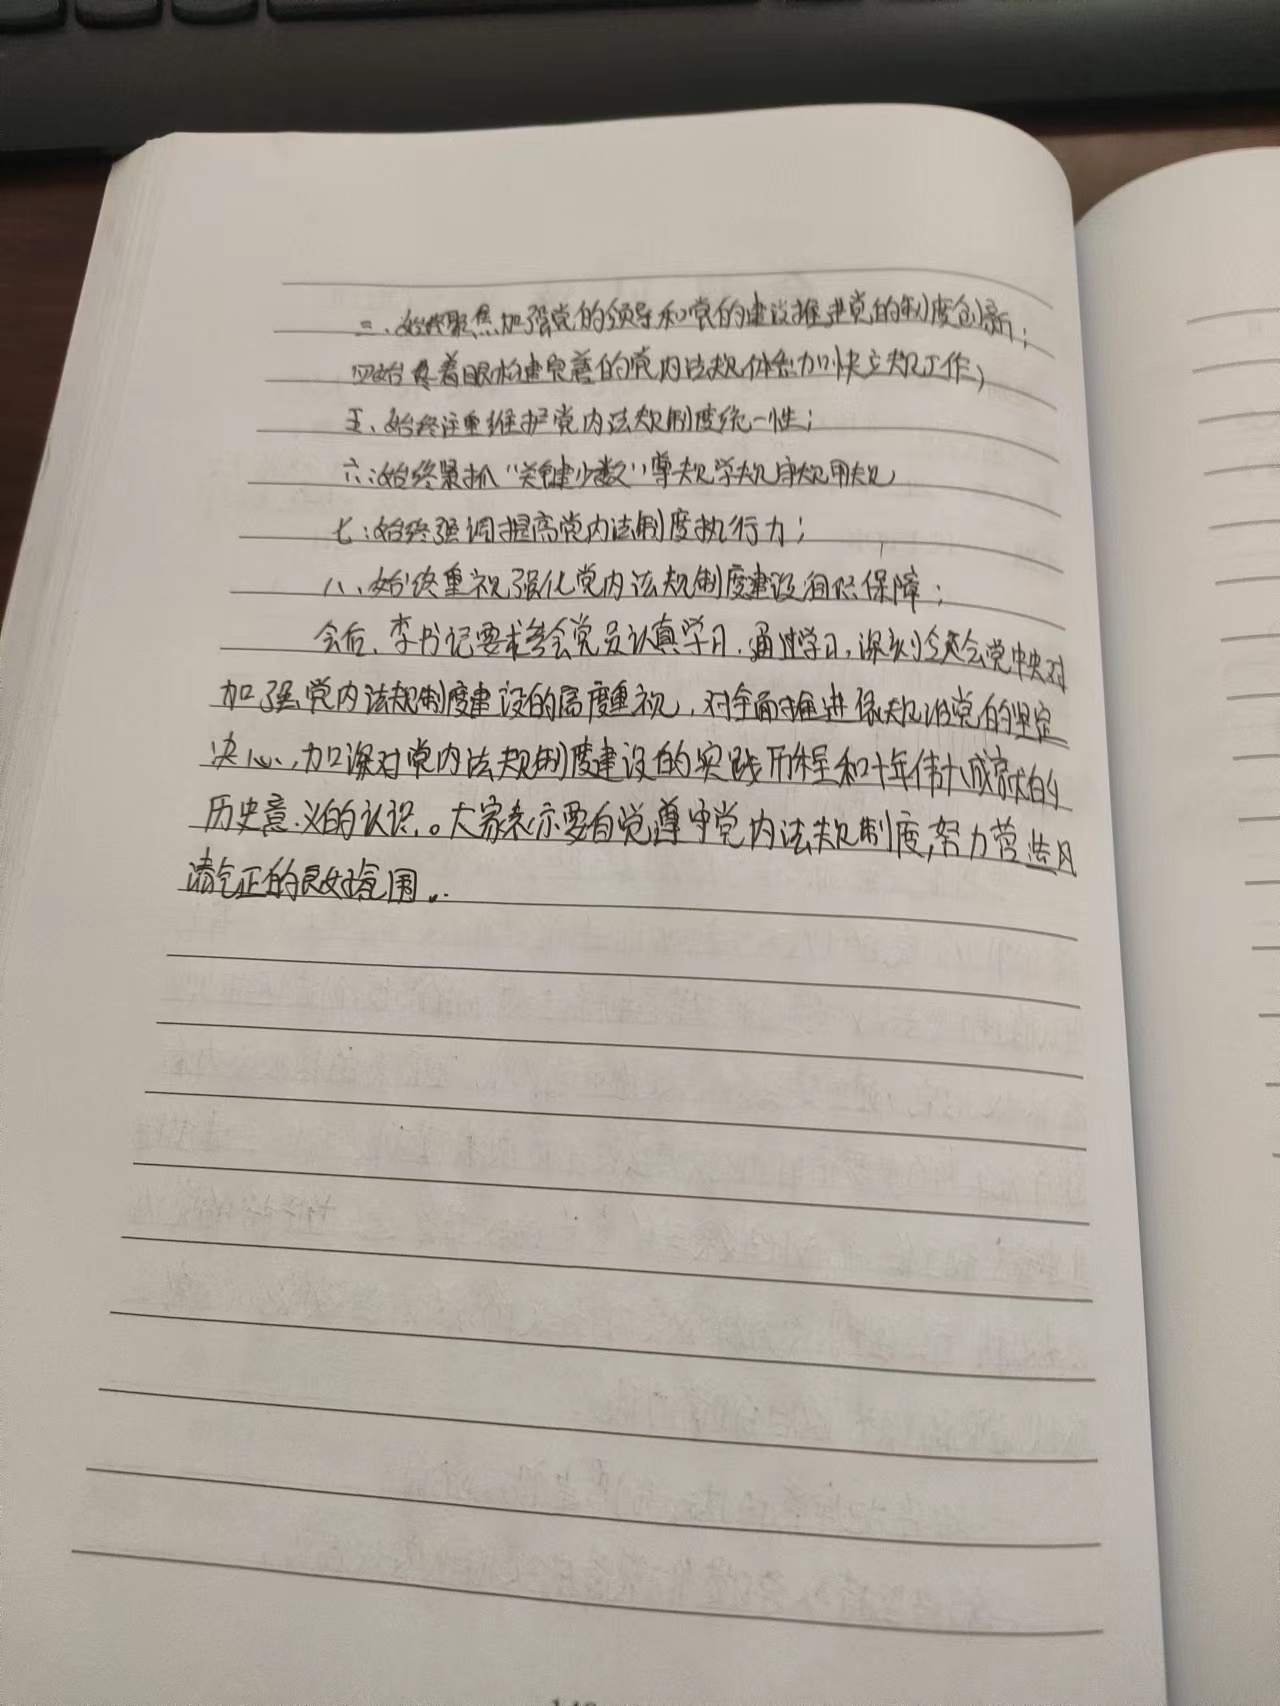 三、始终聚焦加强党的领导和党的建设推进党的制度创新；
四始终着眼构建完善的党内法规体系加快立规工作；
五、始终注重维护党内法规制度统一性；
六：始终紧抓“关键少数”尊规学规守规用规
七：始终强调提高党内法制度执行力；
八、始终重视强化党内法规制度建设组织保障；
会后，李书记要求参会党员认真学习，通过学习，深刻领会党中央对
加强党内法规制度建设的高度重视，对全面推进依规治党的坚定
决心，加深对党内法规制度建设的实践历程和十年伟大成就的
历史意义的认识。大家表示要自觉遵守党内法规制度，努力营造风
清气正的良好氛围。